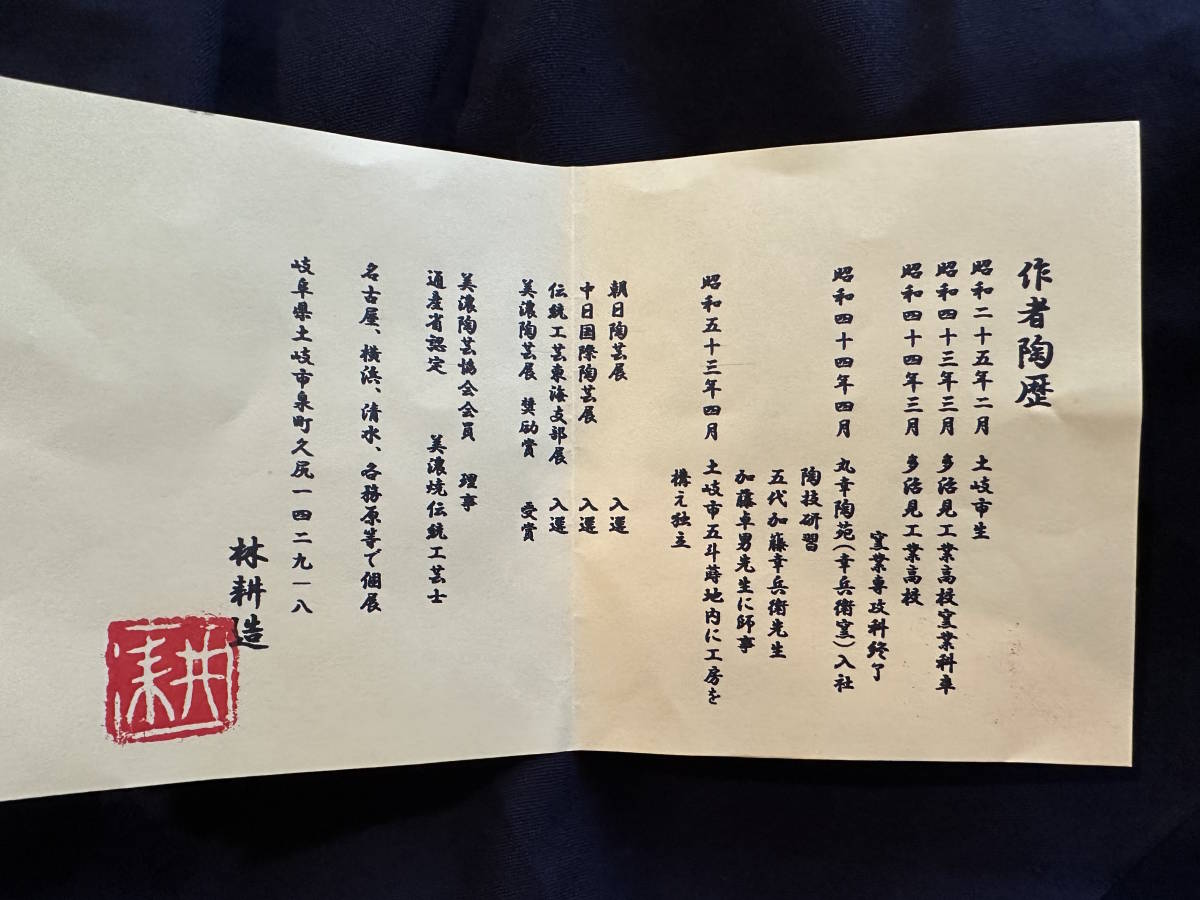 作者陶歴
昭和二十五年二月 土岐市生
昭和四十三年三月 多治見工業高校窯業科卒
昭和四十四年三月 多治見工業高校
窯業専攻科終了
昭和四十四年四月 丸幸陶苑(幸兵衛窯)入社
陶技研習
五代加藤幸兵衛先生
加藤卓男先生に師事
昭和五十三年四月 土岐市五斗蒔地内に工房を
構え独立
朝日陶芸展 入選
中日国際陶芸展 入選
伝統工芸東海支部展 入選
美濃陶芸展 奨励賞 受賞
美濃陶芸協会会員 理事
通産省認定 美濃焼伝統工芸士
名古屋、横浜、清水、各務原等で個展
岐阜県土岐市泉町久尻一四二九ー八
林耕造
耕